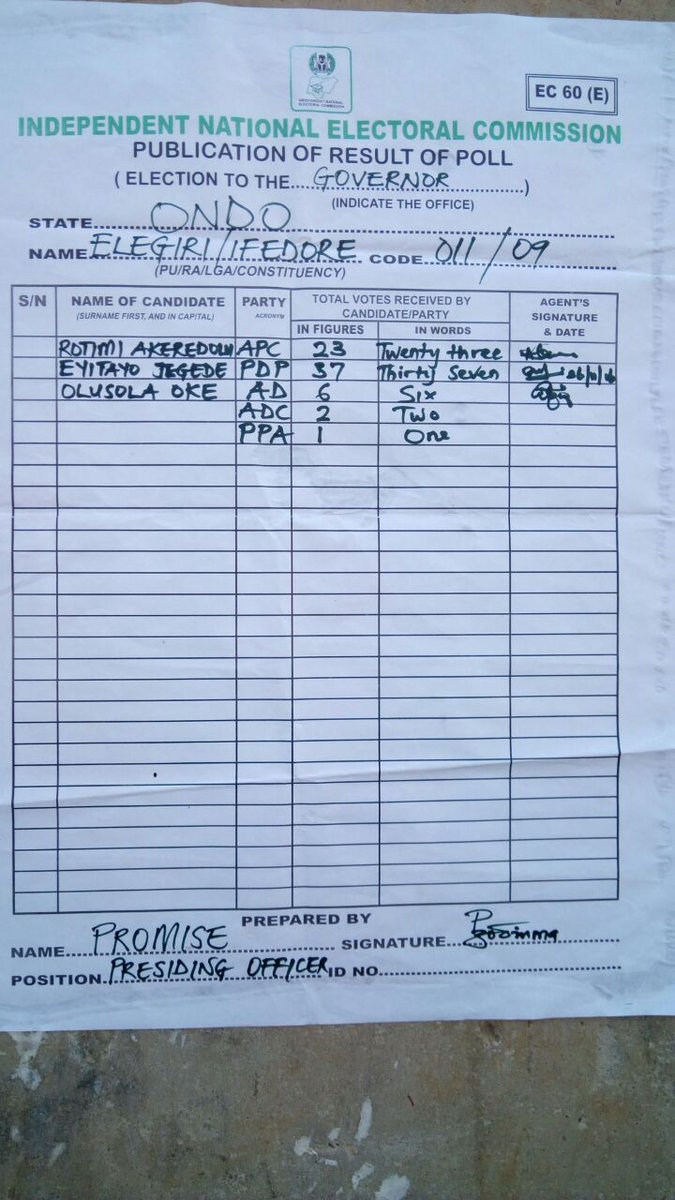 INDEPENDENT NATIONAL
ELECTORAL COMMISSION
EC 60 (E)
INDEPENDENT NATIONAL ELECTORAL COMMISSION
PUBLICATION OF RESULT OF POLL
( ELECTION TO THE....GOVERNOR..............)
(INDICATE THE OFFICE)
STATE........ONDO........
NAME.ELEGIRI/IFEDORE. CODE...011/09
(PU/RA/LGA/CONSTITUENCY)
S/N NAME OF CANDIDATE (SURNAME FIRST, AND IN CAPITAL) PARTY ACRONYM TOTAL VOTES RECEIVED BY CANDIDATE/PARTY AGENT'S SIGNATURE & DATE
IN FIGURES IN WORDS
ROTIMI AKEREDOLU APC 23 Twenty three
EYITAYO JEGEDE PDP 37 Thirty Seven
OLUSOLA OKE AD 6 Six
ADC 2 Two
PPA 1 One
PREPARED BY
NAME....PROMISE.... SIGNATURE....
POSITION.PRESIDING OFFICER ID NO.